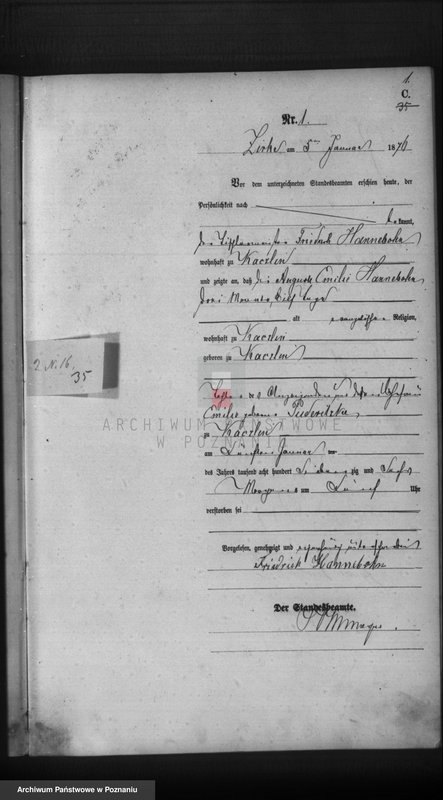 1.
C.
35
Nr. 1.
Zirke am 5ten Januar 1876
Vor dem unterzeichneten Standesbeamten erschien heute, der
Persönlichkeit nach
bekannt,
der Tischlermeister Friedrich Hannebohn
wohnhaft zu Kaczlin
und zeigte an, daß die Auguste Emilie Hannebohn
drei Monate, Tage
alt evangelischer Religion,
wohnhaft zu Kaczlin
geboren zu Kaczlin
2 N. 16.
35
Tochter des Anzeigenden und dessen Ehefrau
Emilie geborene
ARCHIWUM PAŃSTWOWE
W POZNANIU
zu Kaczlin
am fünften Januar
des Jahres tausend acht hundert siebenzig und sechs
Morgens um fünf Uhr
verstorben sei
Vorgelesen, genehmigt und unterschrieben
Friedrich Hannebohn
Der Standesbeamte.
Archiwum Państwowe w Poznaniu